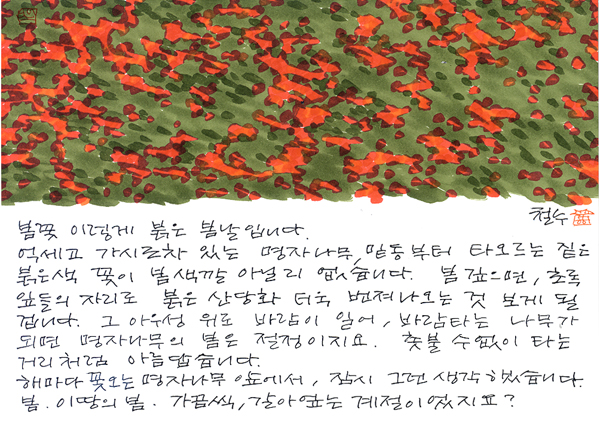 철수
봄꽃 이렇게 붉은 봄날입니다.
억세고 가시로차 있는 명자나무, 밑동부터 타오르는 짙은
붉은색 꽃이 봄색깔 아닐리 없습니다. 봄 깊으면, 초록
잎들의 자리로 붉은 산당화 더욱 번져나오는 것 보게 될
겁니다. 그 아우성 위로 바람이 일어, 바람타는 나무가
되면 명자나무의 봄은 절정이지요. 촛불 수없이 타는
거리처럼 아름답습니다.
해마다 꽃오는 명자나무 앞에서, 잠시 그런 생각 했습니다.
봄. 이땅의 봄. 가끔씩, 갈아엎는 계절이었지요?